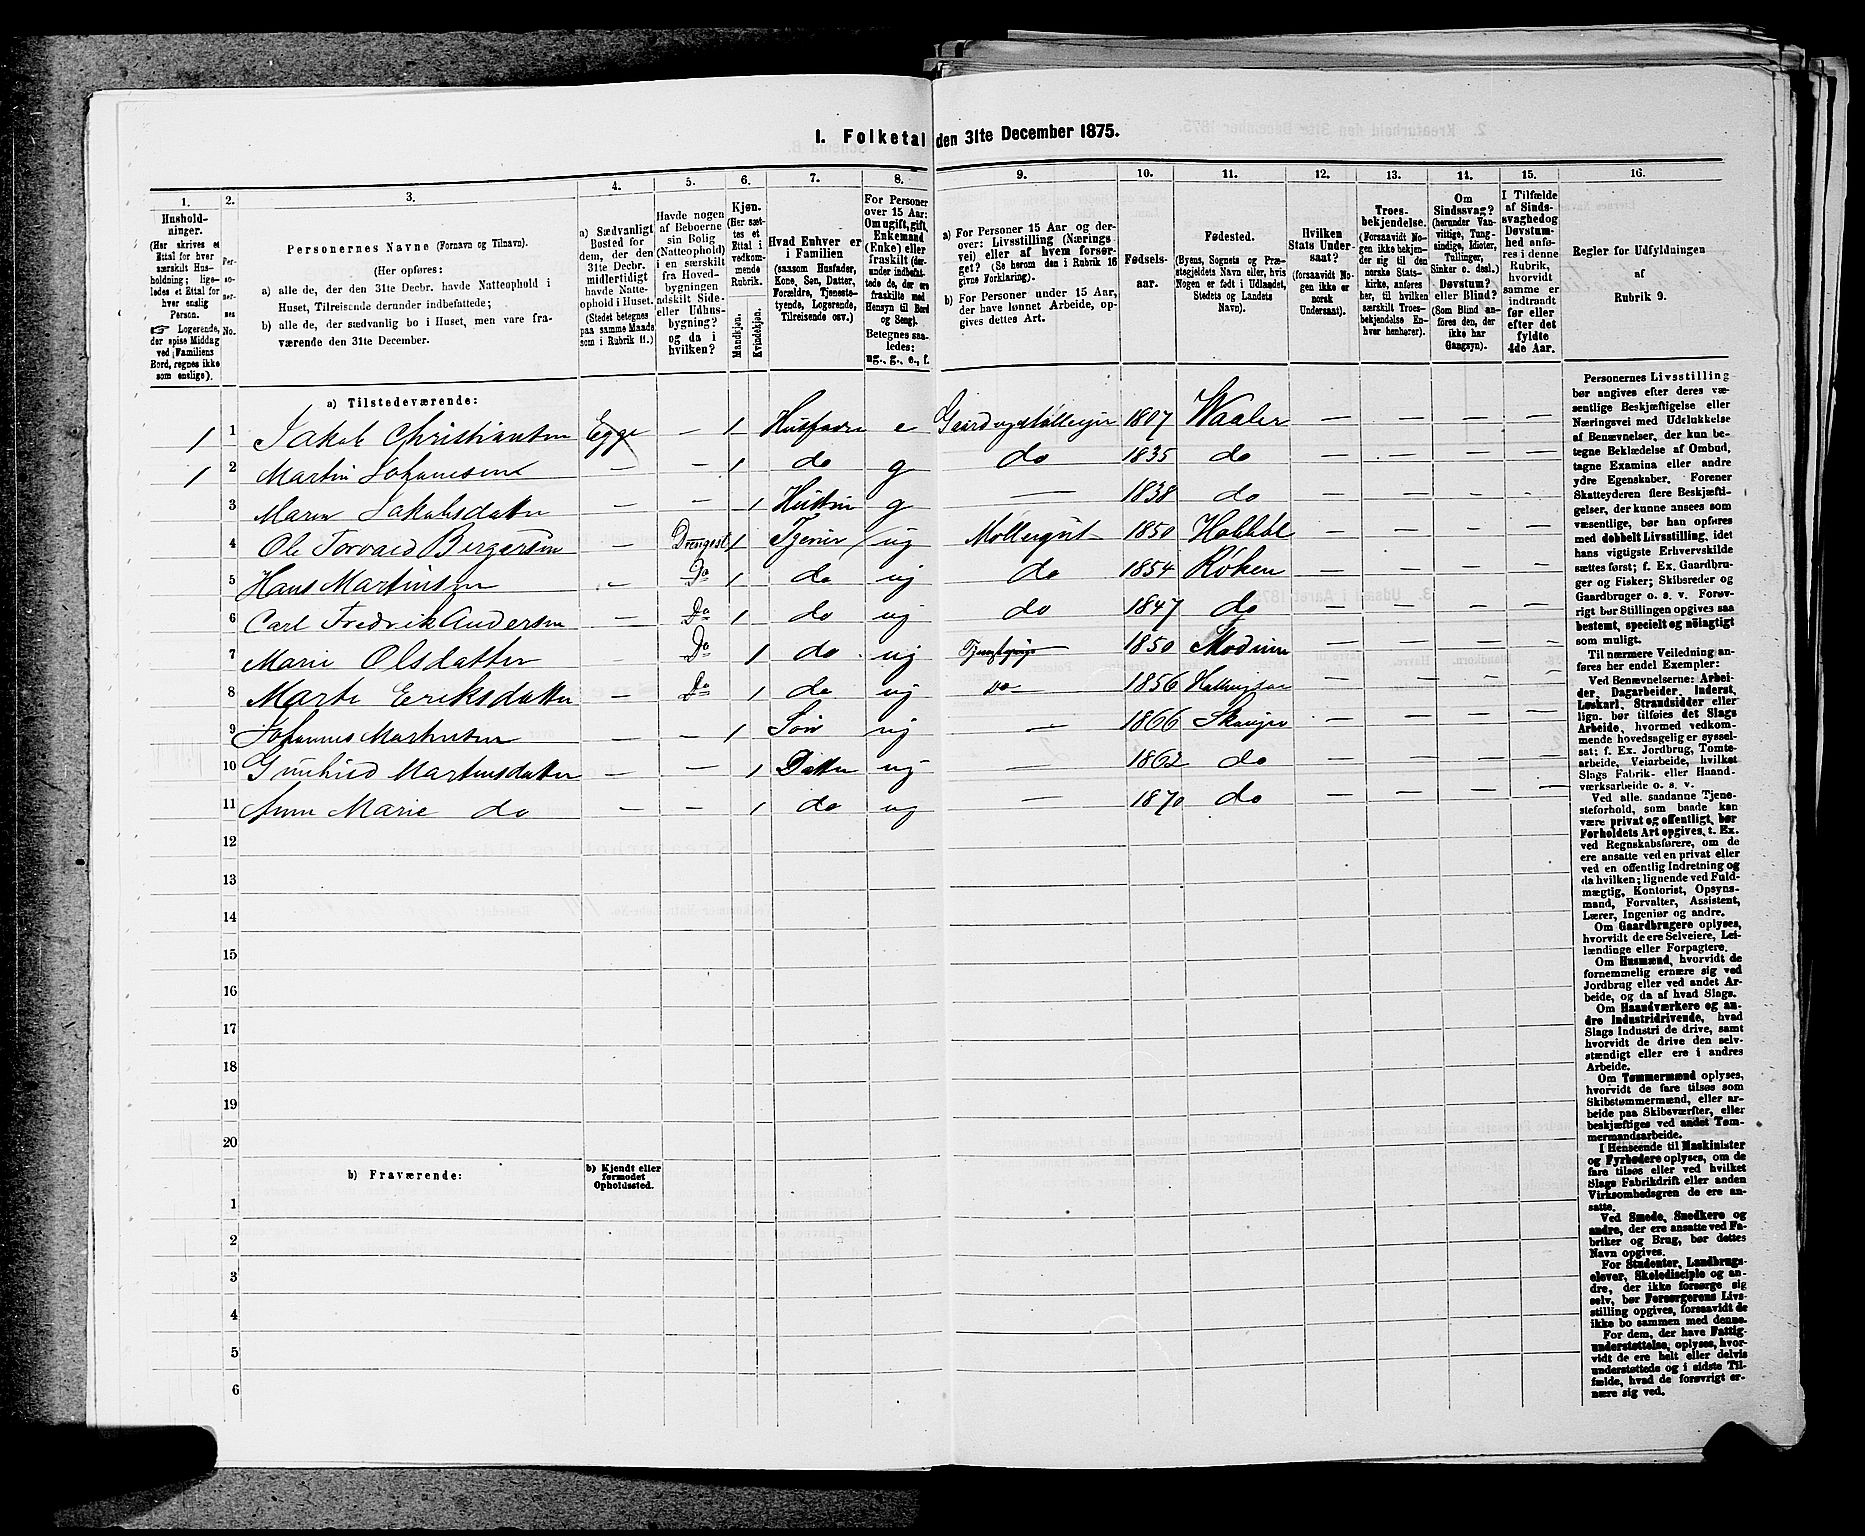 1. Folketal den 31te December 1875.
1. 2. 3. 4. 5. 6. 7. 8. 9. 10. 11. 12. 13. 14. 15. 16.
Husholdninger.
(Her skrives et Ettal for hver særskilt Husholdning; ligeledes et Ettal for hver enslig Person.
☞ Logerende, der spise Middag ved Familiens Bord, regnes ikke som enslige).
Personernes No.
Personernes Navne (Fornavn og Tilnavn).
(Her opføres:
a) alle de, der den 31te Decbr. havde Natteophold i Huset, Tilreisende derunder indbefattede;
b) alle de, der sædvanlig bo i Huset, men vare fraværende den 31te December.
a) Sædvanligt Bosted for dem, der den 31te Decbr. midlertidigt havde Natteophold i Huset. (Stedet betegnes paa samme Maade som i Rubrik 11.)
Havde nogen af Beboerne sin Bolig (Natteophold) i en særskilt fra Hovedbygningen adskilt Side- eller Udhusbygning? og da i hvilken?
Kjøn.
(Her sættes et Ettal i vedkommende Rubrik.
Mandkjøn.
Kvindekjøn.
Hvad Enhver er i Familien
(saasom Husfader, Kone, Søn, Datter, Forældre, Tjenestetyende, Logerende, Tilreisende osv.)
For Personer over 15 Aar: Om ugift, gift, Enkemand (Enke) eller fraskilt (derunder indbefattede de, der ere fraskilte med Hensyn til Bord og Seng).
Betegnes saaledes: ug., g., e., f.
a) For Personer 15 Aar og derover: Livsstilling (Næringsvei) eller af hvem forsørget? (Se herom den i Rubrik 16 givne Forklaring).
b) For Personer under 15 Aar, der have lønnet Arbeide, opgives dettes Art.
Fødselsaar.
Fødested.
(Byens, Sognets og Præstegjeldets Navn eller, hvis Nogen er født i Udlandet, Stedets og Landets Navn).
Hvilken Stats Undersaat?
(forsaavidt Nogen ikke er norsk Undersaat).
Troesbekjendelse.
(Forsaavidt Nogen ikke bekjender sig til den norske Statskirke, anføres her, til hvilken særskilt Troesbekjendelse Enhver henhører).
Om Sindssvag?
(herunder Vanvittige, Tungsindige, Idioter, Tullinger, Sinker o. desl.)
Døvstum? eller Blind?
(Som Blind anføres den, der ikke har Gangsyn).
I Tilfælde af Sindssvaghed og Døvstumhed anføres i denne Rubrik, hvorvidt samme er indtraadt før eller efter det fyldte 4de Aar.
Regler for Udfyldningen af Rubrik 9.
a) Tilstedeværende:
1 1 Jakob Christiansen Egge — 1 Husfader e Gaardbrug 1807 Waaler — — — —
1 2 Martin Johannesen — — 1 do g do 1835 do — — — —
3 Maren Jakobsdatter — — 1 Hustru g — 1838 do — — — —
4 Ole Torvald Bergersen — Drengest 1 Tjener ug Møllergut 1850 Hobbøl — — — —
5 Hans Martinsen — Do 1 do ug do 1854 Røken — — — —
6 Carl Fredrik Andersen — Do 1 do ug do 1847 do — — — —
7 Marie Olsdatter — Do 1 do ug 1850 Modum — — — —
8 Marte Eriksdatter — Do 1 do ug do 1856 — — — —
9 Johannes Martinsen — — 1 Søn ug — 1866 Skauger — — — —
10 Gunhild Martinsdatter — — 1 Datter ug — 1862 do — — — —
11 Anne Marie do — — 1 do ug — 1870 do — — — —
12
13
14
15
16
17
18
19
20
b) Fraværende:
b) Kjendt eller formodet Opholdssted.
1
2
3
4
5
6
Personernes Livsstilling
bør angives efter deres væ-
sentlige Beskjæftigelse eller
Næringsvei med Udelukkelse
af Benævnelser, der kun be-
tegne Beklædelse af Ombud,
tagne Examina eller andre
ydre Egenskaber. Forener
Skatteyderen flere Beskjæfti-
gelser, der kunne ansees som
væsentlige, bør han opføres
med dobbelt Livsstilling, idet
hans vigtigste Erhvervskilde
sættes først; f. Ex. Gaardbru-
ger og Fisker; Skibsreder og
Gaardbruger o. s. v. Forøv-
rigt bør Stillingen opgives saa
bestemt, specielt og nøiagtigt
som muligt.
Til nærmere Veiledning an-
føres her endel Exempler:
Ved Benævnelserne: Arbei-
der, Dagarbeider, Inderst,
Løskarl, Strandsidder eller
lign. bør tilføies det Slags
Arbeide, hvormed vedkom-
mende hovedsagelig er syssel-
sat; f. Ex. Jordbrug, Tomte-
arbeide, Veiarbeide, hvilket
Slags Fabrik- eller Haand-
værksarbeide o. s. v.
Ved alle saadanne Tjene-
steforhold, som baade kan
være privat og offentligt, bør
Forholdets Art opgives, t. Ex.
ved Regnskabsførere, om de
ere ansatte ved en privat eller
ved en offentlig Indretning og
da hvilken; lignende ved Fuld-
mægtig, Kontorist, Opsyns-
mand, Forvalter, Assistent,
Lærer, Ingeniør og andre.
Om Gaardbrugere oplyses,
hvorvidt de ere Selveiere, Lei-
lændinge eller Forpagtere.
Om Husmænd, hvorvidt de
fornemmelig ernære sig ved
Jordbrug eller ved andet Ar-
beide, og da af hvad Slags.
Om Haandværkere og an-
dre Industridrivende, hvad
Slags Industri de drive, samt
hvorvidt de drive den selv-
stændigt eller ere i andres
Arbeide.
Om Tømmermænd oplyses,
hvorvidt de fare tilsøs som
Skibstømmermænd, eller ar-
beide paa Skibsværfter, eller
beskjæftiges ved andet Tøm-
mermandsarbeide.
I Henseende til Maskinister
og Fyrbødere oplyses, om de
fare tilsøs eller ved hvilket
Slags Fabrikdrift eller anden
Virksomhedsgren de ere an-
satte.
Ved Smede, Snedkere og
andre, der ere ansatte ved Fa-
briker og Brug, bør dettes
Navn opgives.
For Studenter, Landbrugs-
elever, Skoledisciple og an-
dre, der ikke forsørge sig
selv, bør Forsørgerens Livs-
stilling opgives, forsaavidt de
ikke bo sammen med denne.
For dem, der have Fattig-
understøttelse, oplyses, hvor-
vidt de ere helt eller delvis
understøttede og i sidste Til-
fælde, hvad de forøvrigt er-
nære sig ved.